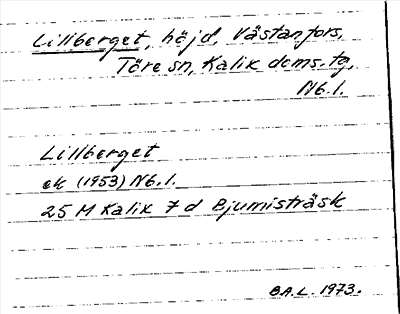 Lillberget, höjd, Västanfors,
Töre sn, Kalix doms.tg,
Nb.l.
Lillberget
ek (1953) Nb.l.
25 M Kalix 7 d Bjumisträsk
B.A.L. 1973.